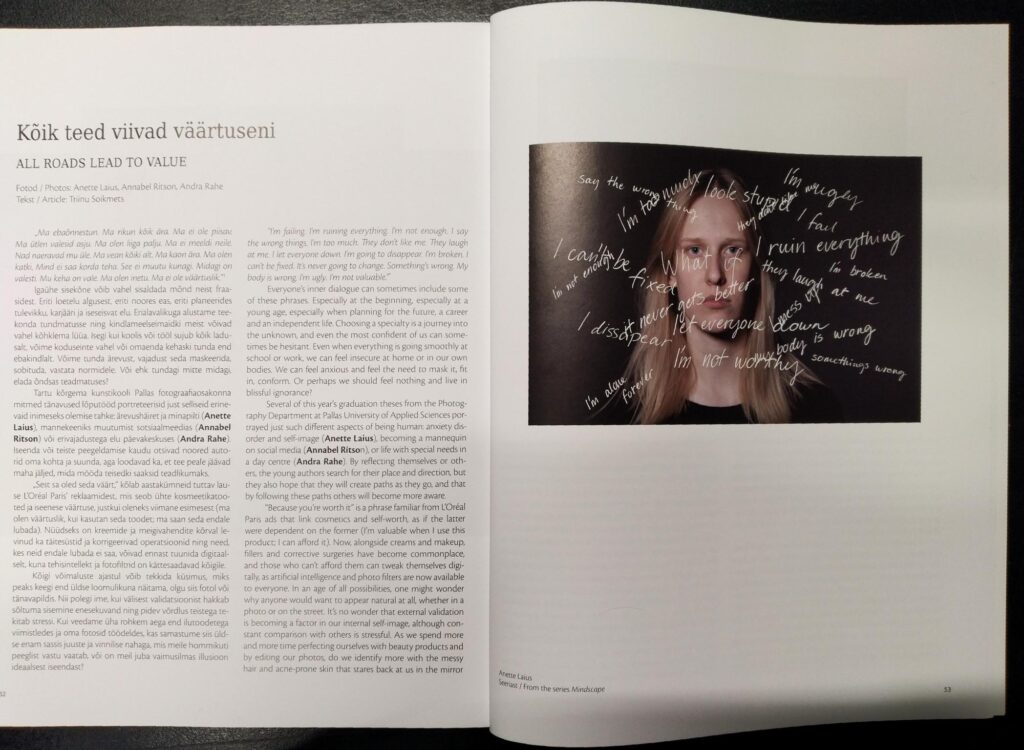 Kõik teed viivad väärtuseni
ALL ROADS LEAD TO VALUE
Fotod / Photos: Anette Laius, Annabel Ritson, Andra Rahe
Tekst / Article: Triinu Soikmets
„Ma ebaõnnestun. Ma rikun kõik ära. Ma ei ole piisav.
Ma ütlen valesid asju. Ma olen liiga palju. Ma ei meeldi neile.
Nad naeravad mu üle. Ma vean kõiki alt. Ma kaon ära. Ma olen
katki. Mind ei saa korda teha. See ei muutu kunagi. Midagi on
valesti. Mu keha on vale. Ma olen inetu. Ma ei ole väärtuslik.“
Igaühe sisekõne võib vahel sisaldada mõnd neist fraa-
sidest. Eriti loetelu algusest, eriti noores eas, eriti planeerides
tulevikku, karjääri ja iseseisvat elu. Erialavalikuga alustame tee-
konda tundmatusse ning kindlameelseimaidki meist võivad
vahel kõhklema lüüa. Isegi kui koolis või tööl sujub kõik ladu-
salt, võime koduseinte vahel või omaenda kehaski tunda end
ebakindlalt. Võime tunda ärevust, vajadust seda maskeerida,
sobituda, vastata normidele. Või ehk tundagi mitte midagi,
elada õndsas teadmatuses?
Tartu kõrgema kunstikooli Pallas fotograafiaosakonna
mitmed tänavused lõputööd portreteerisid just selliseid erine-
vaid inimeseks olemise tahke: ärevushäiret ja minapilti (Anette
Laius), mannekeeniks muutumist sotsiaalmeedias (Annabel
Ritson) või erivajadustega elu päevakeskuses (Andra Rahe).
Iseenda või teiste peegeldamise kaudu otsivad noored auto-
rid oma kohta ja suunda, aga loodavad ka, et tee peale jäävad
maha jäljed, mida mööda teisedki saaksid teadlikumaks.
„Sest sa oled seda väärt,“ kõlab aastakümneid tuttav lau-
se L’Oréal Paris’ reklaamidest, mis seob ühte kosmeetikatoo-
ted ja iseenese väärtuse, justkui oleneks viimane esimesest (ma
olen väärtuslik, kui kasutan seda toodet; ma saan seda endale
lubada). Nüüdseks on kreemide ja meigivahendite kõrval le-
vinud ka täitesüstid ja korrigeerivad operatsioonid ning need,
kes neid endale lubada ei saa, võivad ennast tuunida digitaal-
selt, kuna tehisintellekt ja fotofiltrid on kättesaadavad kõigile.
Kõigi võimaluste ajastul võib tekkida küsimus, miks
peaks keegi end üldse loomulikuna näitama, olgu siis fotol või
tänavapildis. Nii polegi ime, kui välisest validatsioonist hakkab
sõltuma sisemine enesekuvand ning pidev võrdlus teistega te-
kitab stressi. Kui veedame üha rohkem aega end ilutoodetega
viimistledes ja oma fotosid töödeldes, kas samastume siis üld-
se enam sassis juuste ja vinnilise nahaga, mis meile hommikuti
peeglist vastu vaatab, või on meil juba vaimusilmas illusioon
ideaalsest iseendast?
52
“I’m failing. I’m ruining everything. I’m not enough. I say
the wrong things. I’m too much. They don’t like me. They laugh
at me. I let everyone down. I’m going to disappear. I’m broken. I
can’t be fixed. It’s never going to change. Something’s wrong. My
body is wrong. I’m ugly. I’m not valuable.”
Everyone’s inner dialogue can sometimes include some
of these phrases. Especially at the beginning, especially at a
young age, especially when planning for the future, a career
and an independent life. Choosing a specialty is a journey into
the unknown, and even the most confident of us can some-
times be hesitant. Even when everything is going smoothly at
school or work, we can feel insecure at home or in our own
bodies. We can feel anxious and feel the need to mask it, fit
in, conform. Or perhaps we should feel nothing and live in
blissful ignorance?
Several of this year’s graduation theses from the Photog-
raphy Department at Pallas University of Applied Sciences por-
trayed just such different aspects of being human: anxiety dis-
order and self-image (Anette Laius), becoming a mannequin
on social media (Annabel Ritson), or life with special needs in
a day centre (Andra Rahe). By reflecting themselves or oth-
ers, the young authors search for their place and direction, but
they also hope that they will create paths as they go, and that
by following these paths others will become more aware.
“Because you’re worth it” is a phrase familiar from L’Oréal
Paris ads that link cosmetics and self-worth, as if the latter
were dependent on the former (I’m valuable when I use this
product; I can afford it). Now, alongside creams and makeup,
fillers and corrective surgeries have become commonplace,
and those who can’t afford them can tweak themselves digi-
tally, as artificial intelligence and photo filters are now available
to everyone. In an age of all possibilities, one might wonder
why anyone would want to appear natural at all, whether in a
photo or on the street. It’s no wonder that external validation
is becoming a factor in our internal self-image, although con-
stant comparison with others is stressful. As we spend more
and more time perfecting ourselves with beauty products and
by editing our photos, do we identify more with the messy
hair and acne-prone skin that stares back at us in the mirror
say the wrong
thing
I'm too much
I look stupid
I'm ugly
I fail
I ruin everything
I can't be
fixed
I'm not enough
What if
they laugh at me
I'm broken
it never gets better
I disappear
I let everyone down
body is wrong
I'm not worthy
somethings wrong
I'm alone
forever
Anette Laius
Seeriast / From the series Mindscape
53